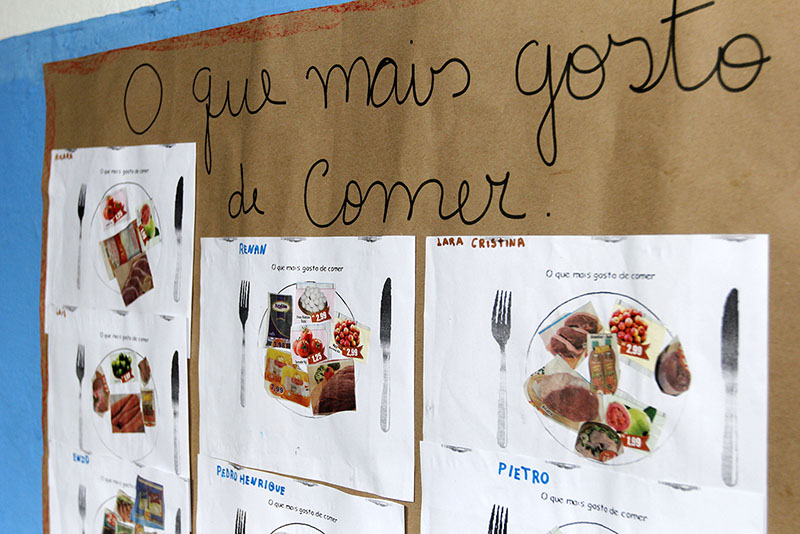 O que mais gosto
de comer.
O que mais gosto de comer
RENAN
O que mais gosto de comer
2,99
1,25
2,99
LARA CRISTINA
O que mais gosto de comer
2,99
1,99
O que mais gosto de comer
ENZO
O que mais gosto de comer
PEDRO HENRIQUE
O que mais gosto de comer
PIETRO
O que mais gosto de comer